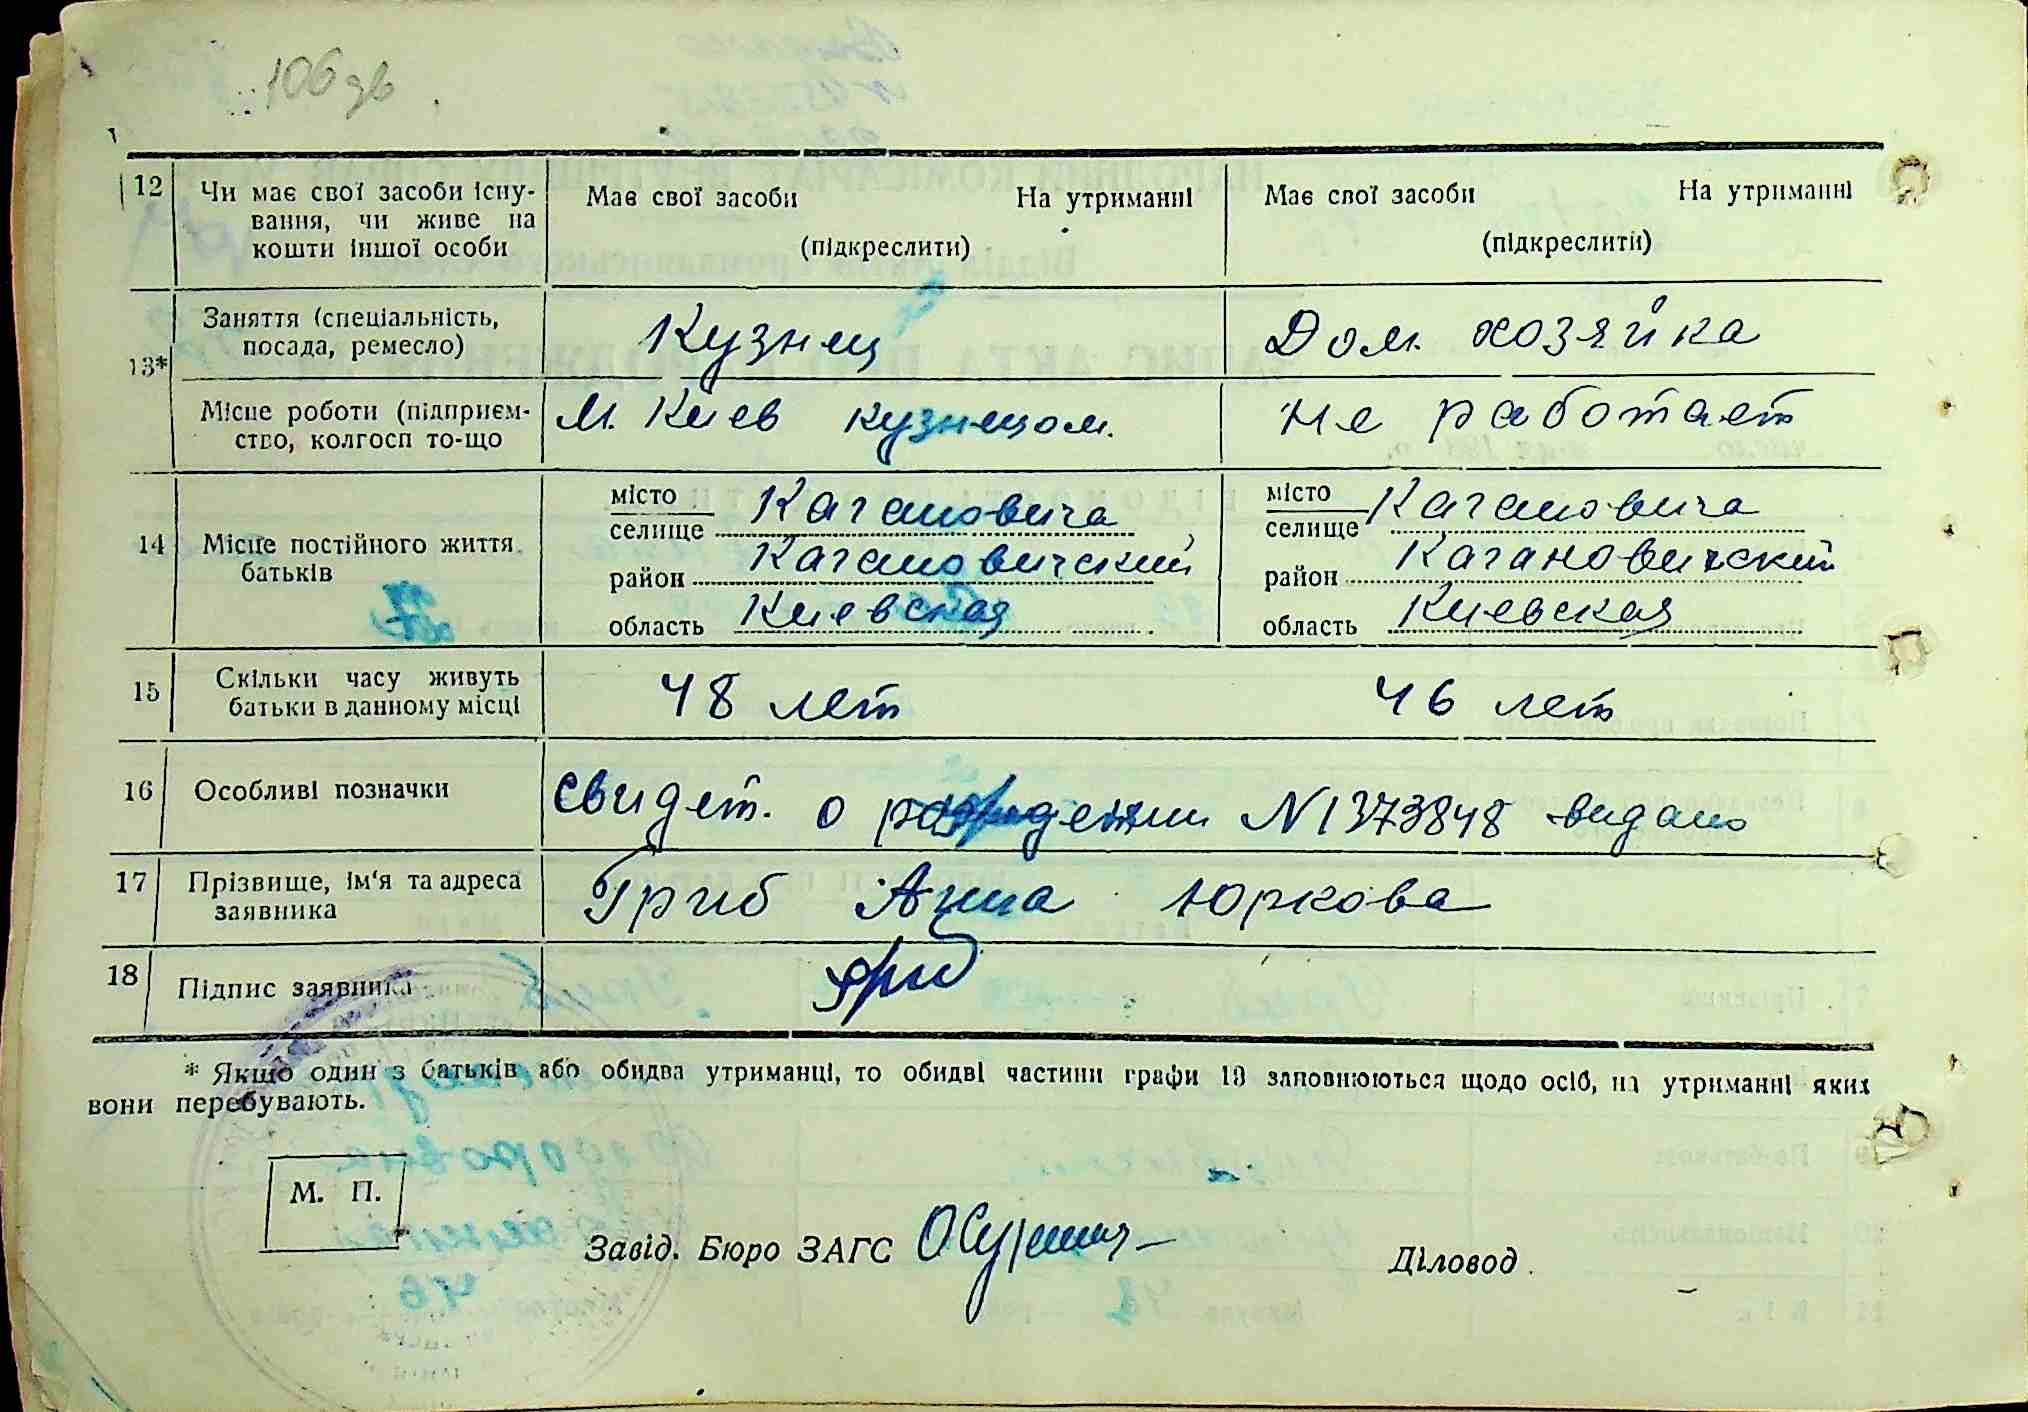 106 зв
12 Чи має свої засоби існу- Має свої засоби На утриманні Має свої засоби На утриманні
вання, чи живе на
кошти іншої особи (підкреслити) (підкреслити)
13* Заняття (спеціальність, Кузнец Дом. хозяйка
посада, ремесло)
Місце роботи (підприєм- М. Киев кузнецом. не работает
ство, колгосп то-що
14 Місце постійного життя батьків
місто Кагановича місто Кагановича
селище селище
район Кагановичский район Кагановичский
область Киевская область Киевская
15 Скільки часу живуть 48 лет 46 лет
батьки в данному місці
16 Особливі позначки свидет. о N 1373848 видано
17 Прізвище, ім'я та адреса Гриб Анна Юркова
заявника
18 Підпис заявника Гриб
* Якщо один з батьків або обидва утриманці, то обидві частини графи 13 заповнюються щодо осіб, на утриманні яких
вони перебувають.
М. П.
Завід. Бюро ЗАГС Діловод